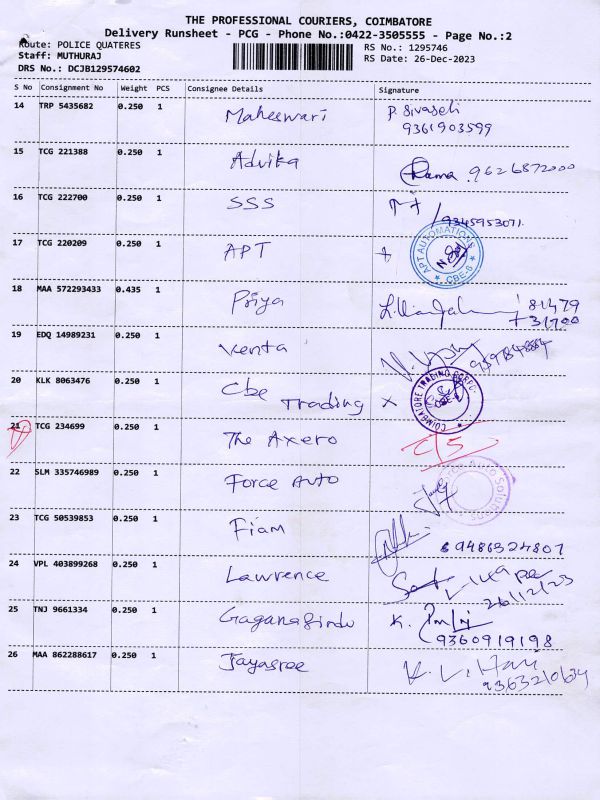 THE PROFESSIONAL COURIERS, COIMBATORE
Delivery Runsheet - PCG - Phone No.:0422-3505555 - Page No.:2
Route: POLICE QUATERES
RS No.: 1295746
Staff: MUTHURAJ
RS Date: 26-Dec-2023
DRS No.: DCJB129574602
S No Consignment No Weight PCS Consignee Details Signature
14 TRP 5435682 0.250 1 Maheswari P. Sivaseli
9361903599
15 TCG 221388 0.250 1 Advika Rama 9626872000
16 TCG 222700 0.250 1 SSS
9345953071
17 TCG 220209 0.250 1 APT
APT AUTOMATIONS CBE-6
18 MAA 572293433 0.435 1 Priya 81479
31700
19 EDQ 14989231 0.250 1 Venta
20 KLK 8063476 0.250 1 Cbe Trading x
COIMBATORE TRADING CORPC. CBE-6
21 TCG 234699 0.250 1 The Axero
22 SLM 335746989 0.250 1 Force Auto
Auto Solutions
23 TCG 50539853 0.250 1 Fiam
9486324807
24 VPL 403899268 0.250 1 Lawrence
26/12/23
25 TNJ 9661334 0.250 1 Gaganasindu K.
9360919198
26 MAA 862288617 0.250 1 Jayasree K. V. Hari